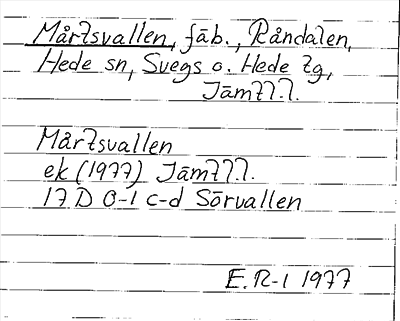 Mårtsvallen, fäb., Råndalen,
Hede sn, Svegs o. Hede tg,
Jämtl.l.
Mårtsvallen
ek (1977) Jämtl.l.
17 D 0-1 c-d Sörvallen
E. R-l 1977